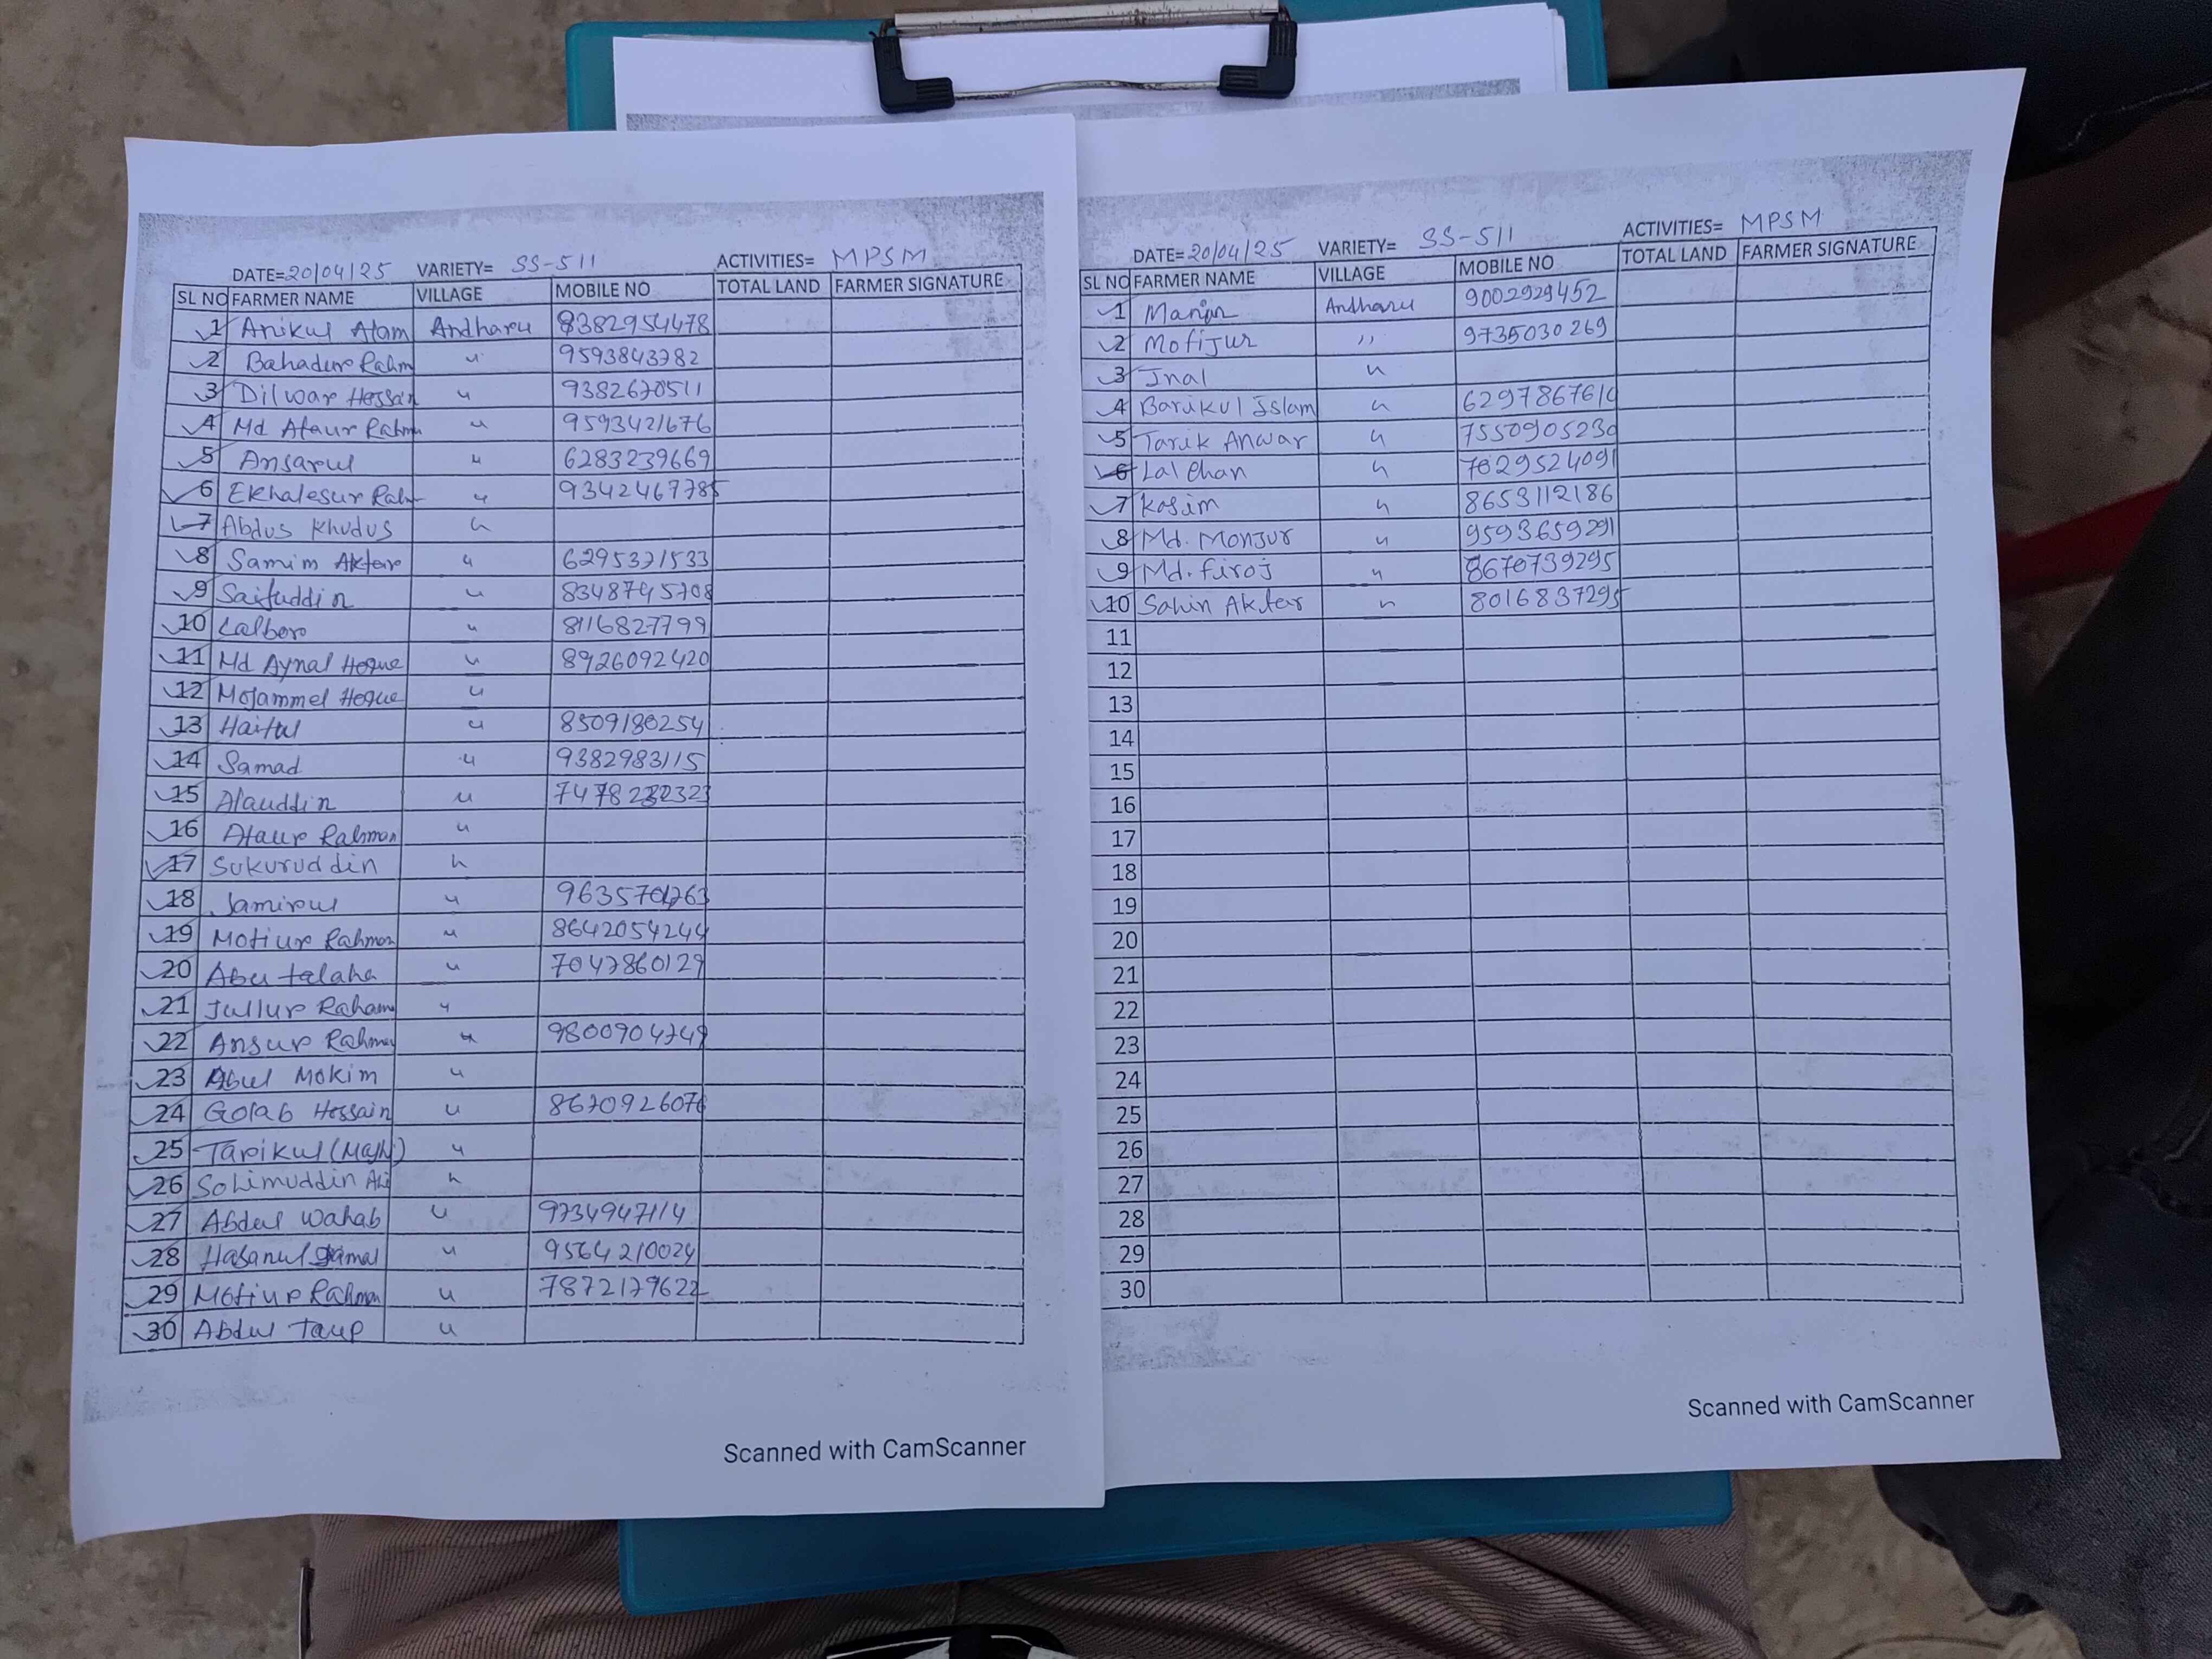 DATE= 20/04/25 VARIETY= SS-511 ACTIVITIES= MPSM
SL NO FARMER NAME VILLAGE MOBILE NO TOTAL LAND FARMER SIGNATURE
1 Anikul Alam Andharu 8382954478
2 Bahadur Rahm " 9593843782
3 Dilwar Hossain " 9382670511
4 Md Ataur Rahm " 9593421676
5 Ansarul " 6283239669
6 Ekhalesur Rahm " 9342467785
7 Abdus Khudus "
8 Samim Aktar " 6295371533
9 Saifuddin " 8348745708
10 Lalboro " 8116827799
11 Md Aynal Hoque " 8926092420
12 Mojammel Hoque "
13 Haitul " 8509180254
14 Samad " 9382983115
15 Alauddin " 7478232323
16 Ataur Rahman "
17 Sukuruddin "
18 Jamirul "
19 Motiur Rahman " 8642054244
20 Abu talaha " 7047860129
21 Jullur Raham "
22 Ansur Rahman " 9800904749
23 Abul Mokim "
24 Golab Hossain " 8670926076
25 Tarikul (Majhi) "
26 Solimuddin Ali "
27 Abdul Wahab " 9734947114
28 Hasanul Jamal " 9564210024
29 Motiur Rahman " 7872179622
30 Abdul Taup "
Scanned with CamScanner
DATE= 20/04/25 VARIETY= SS-511 ACTIVITIES= MPSM
SL NO FARMER NAME VILLAGE MOBILE NO TOTAL LAND FARMER SIGNATURE
1 Andharu 9002929452
2 Mofijur " 9735030269
3 Jnal "
4 Barikul Islam " 6297867610
5 Tarik Anwar " 7550905230
6 Lal Chan " 7029524091
7 Kosim " 8653112186
8 Md. Monjur " 9593659291
9 Md. firoj " 8670739295
10 Sahin Aktar " 8016837295
11
12
13
14
15
16
17
18
19
20
21
22
23
24
25
26
27
28
29
30
Scanned with CamScanner